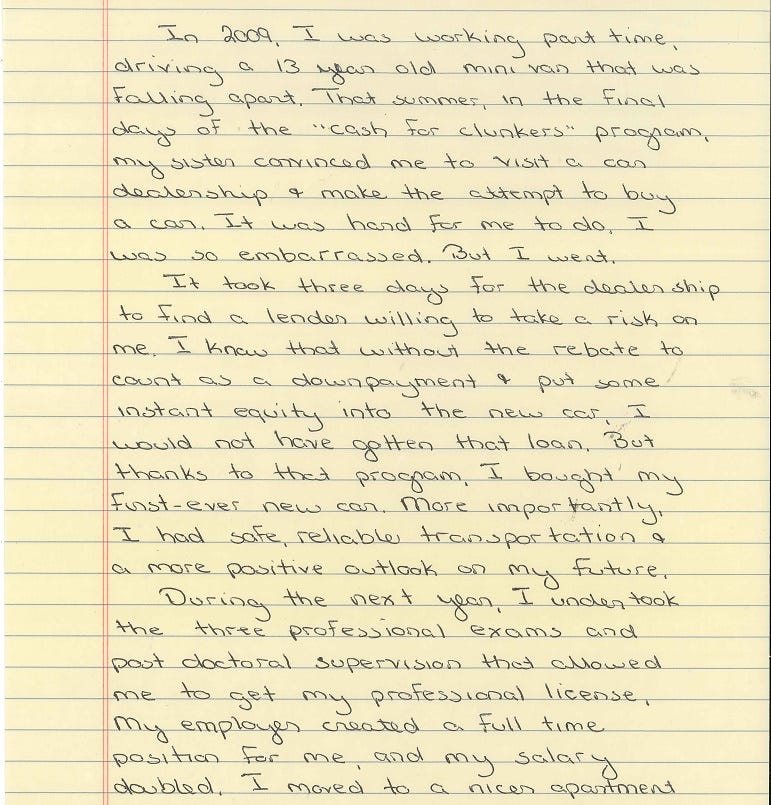 In 2009, I was working part time,
driving a 13 year old mini van that was
falling apart. That summer, in the final
days of the "cash for clunkers" program,
my sister convinced me to visit a car
dealership & make the attempt to buy
a car. It was hard for me to do. I
was so embarrassed. But I went.
It took three days for the dealership
to find a lender willing to take a risk on
me. I know that without the rebate to
count as a downpayment & put some
instant equity into the new car, I
would not have gotten that loan. But
thanks to that program, I bought my
first-ever new car. More importantly,
I had safe, reliable transportation &
a more positive outlook on my future.
During the next year, I undertook
the three professional exams and
post doctoral supervision that allowed
me to get my professional license.
My employer created a full time
position for me, and my salary
doubled. I moved to a nicer apartment